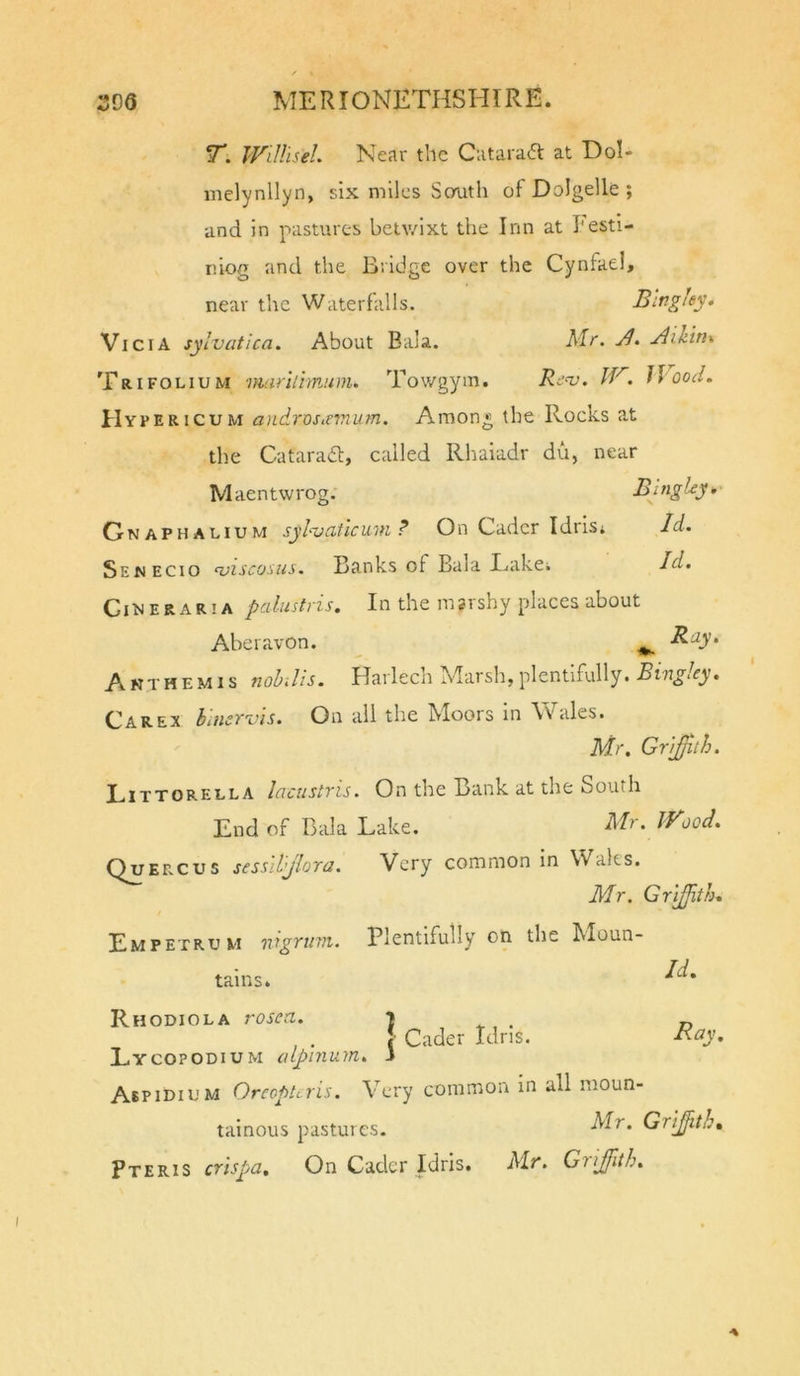 396 MERIONETHSHIRE.
T. Willisel. Near the Cataract at Dol-
melynllyn, six miles South of Dolgelle ;
and in pastures betwixt the Inn at Festi-
niog and the Bridge over the Cynfael,
near the Waterfalls. Bingley.
VICIA sylvatica. About Bala. Mr. A. Aikin.
TRIFOLIUM maritimum. Towgym. Rev. W. Wood.
HYPERICUM androsæmum. Among the Rocks at
the Cataract, called Rhaiadr dû, near
Maentwrog. Bingley.
GNAPHALIUM sylvaticum ? On Cader Idris. Id.
SENECIO viscosus. Banks of Bala Lake. Id.
CINERARIA palustris. In the marshy places about
Aberavon. Ray.
ANTHEMIS nobilis. Harlech Marsh, plentifully. Bingley.
CAREX binervis. On all the Moors in Wales.
Mr. Griffith.
LITTORELLA lacustris. On the Bank at the South
End of Bala Lake. Mr. Wood.
QUERCUS sessiliflora. Very common in Wales.
Mr. Griffith.
EMPETRUM nigrum. Plentifully on the Moun-
tains. Id.
RHODIOLA rosea.
LYCOPODIUM alpinum. } Cader Idris. Ray.
ASPIDIUM Oreopteris. Very common in all moun-
tainous pastures. Mr. Griffith.
PTERIS crispa. On Cader Idris. Mr. Griffith.